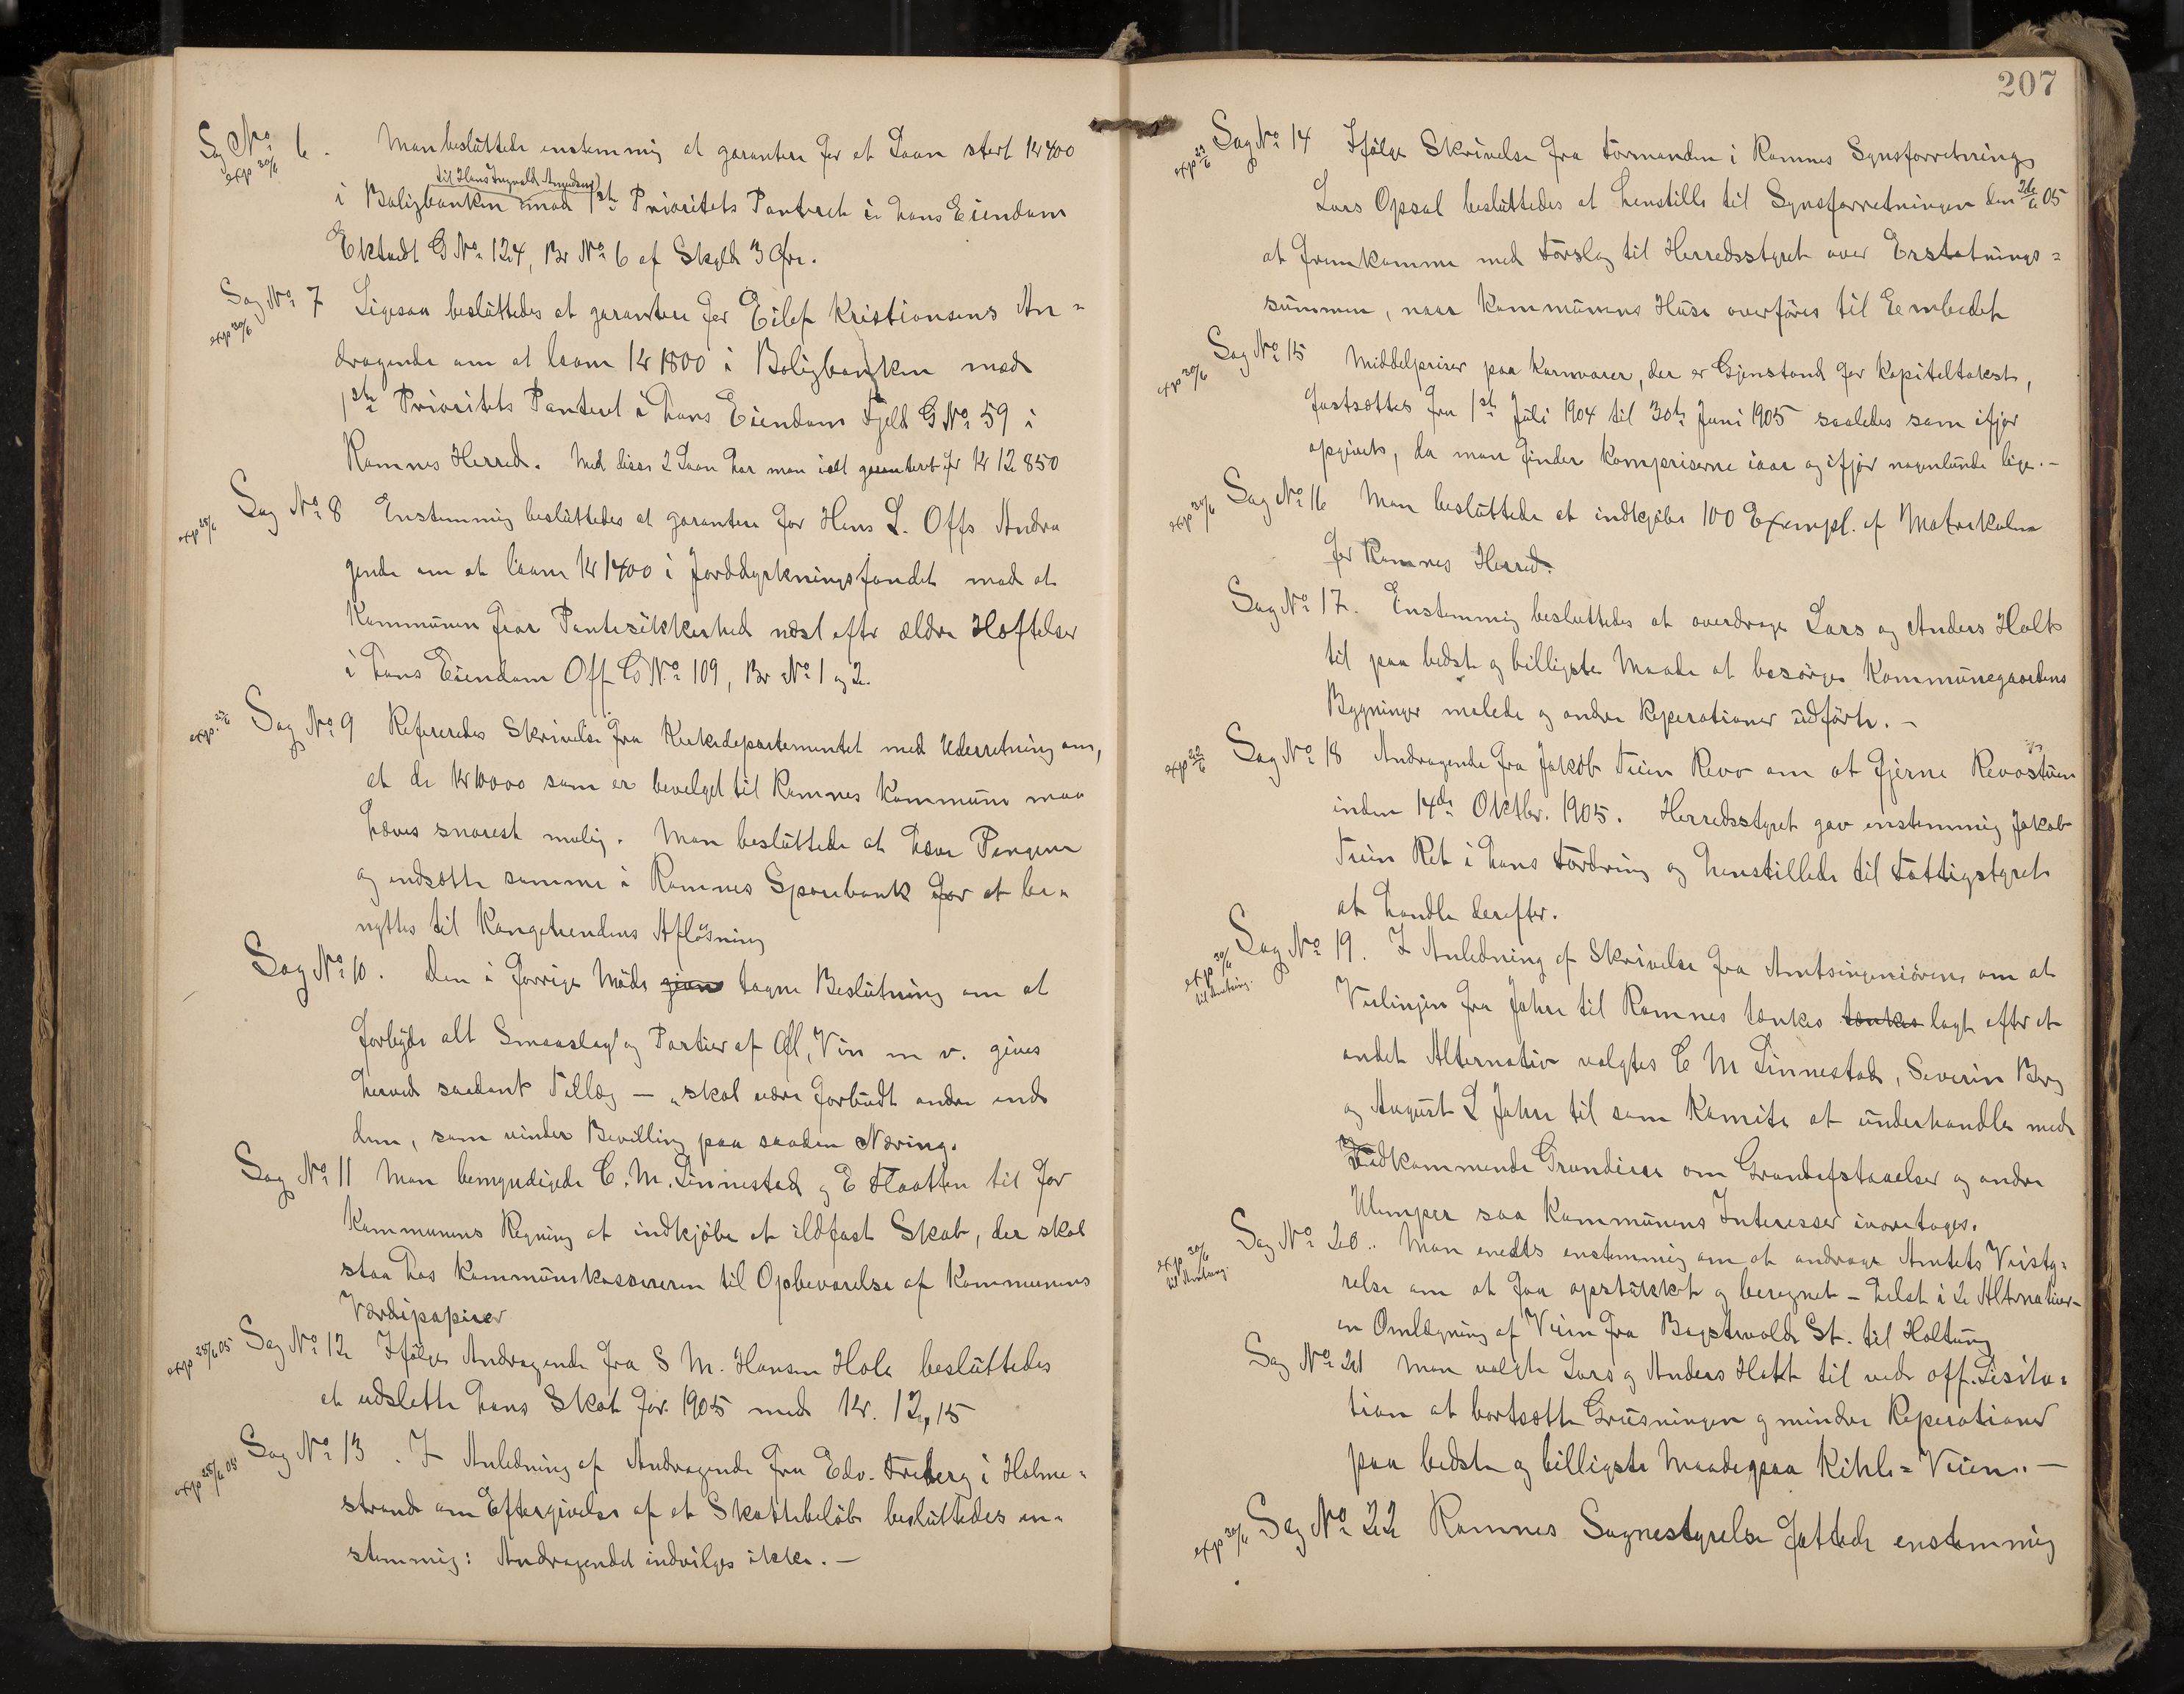 Sag No 6. Man besluttede enstemmig at garantere for et Laan stort kr 400
exp 30/6
til Hans Ingvald Amundsen
i Boligbanken mod 1ste Prioritets Panteret i hans Eiendom
Ektvedt G No 124, Br No 6 af Skyld 3 Øre.
Sag No 7 Ligesaa besluttedes at garantere for Eilef Kristiansens An=
exp 30/6
dragende om at laane kr 1800 i Boligbanken mod
1ste Prioritets Panteret i hans Eiendom Fjeld G No 59 i
Ramnes Herred. Med disse 2 Laan har man ialt garanteret for kr 12850
Sag No 8 Enstemmig besluttedes at garantere for Hans L. Offs Andra
exp 25/6
gende om at laane kr 1400 i Jorddyrkningsfondet mod at
Kommunen faar Pantesikkerhed næst efter ældre Hæftelser
i hans Eiendom Off G No 109, Br No 1 og 2.
exp. Sag No 9 Refereredes Skrivelse fra Kirkedepartementet med Underretning om,
at de kr 10000 som er bevilget til Ramnes Kommune maa
hæves snarest mulig. Man besluttede at hæve Pengene
og indsætte samme i Ramnes Sparebank for at be=
nyttes til Kongetiendens Afløsning
Sag No 10. Den i forrige Møde givne tagne Beslutning om at
forbyde alt Smaaslag og Partier af Øl, Vin m v. gives
herved saadant Tillæg — „skal være forbudt andre end
dem, som vinder Bevilling paa saadan Næring.
Sag No 11 Man bemyndigede C. M. Linnestad og E Flaatten til for
Kommunens Regning at indkjøbe et ildfast Skab, der skal
staa hos Kommunekassereren til Opbevarelse af Kommunens
Værdipapirer
exp 25/6 05 Sag No 12 Ifølge Andragende fra S M. Hansen Hole besluttedes
at udslette hans Skat for 1905 med Kr. 12,15
exp 25/6 05 Sag No 13. I Anledning af Andragende fra Edv. Freberg i Holme=
strand om Eftergivelse af et Skattebeløb besluttedes en=
stemmig: Andragendet indvilges ikke. —
207
exp 23/6 Sag No 14 Ifølge Skrivelse fra Formanden i Ramnes Synsforretning
Lars Opsal besluttedes at henstille til Synsforretningen den 2de/6 05
at fremkomme med Forslag til Herredsstyret over Erstatnings=
summen, naar Kommunens Huse overføres til Embedet
exp 30/6 Sag No 15 Middelpriser paa Kornvarer, der er Gjenstand for Kapiteltakst,
fastsættes fra 1ste Juli 1904 til 30te Juni 1905 saaledes som ifjor
opgivets, da man finder Kornpriserne iaar og ifjor nogenlunde lige. —
exp 30/6 Sag No 16 Man besluttede at indkjøbe 100 Exempl. af Matrikulen
for Ramnes Herred.
Sag No 17. Enstemmig besluttedes at overdrage Lars og Anders Holt
til paa bedste og billigste Maade at besørge Kommunegaardens
Bygninger malede og andre Reperationer udførte. —
exp 22/6 Sag No 18 Andragende fra Jakob Teien Revo om at fjerne Revostuen
inden 14de Oktbr. 1905. Herredsstyret gav enstemmig Jakob
Teien Ret i hans Fordring og henstillede til Fattigstyret
at handle derefter.
exp 30/6 Sag No 19. I Anledning af Skrivelse fra Amtsingeniøren, om at
til Amtsing.
Veilinjen fra Jahre til Ramnes tænkes tænkes lagt efter et
andet Alternativ valgtes C M Linnestad, Severin Berg
og August L Jahre til som Komite at underhandle med
Vedkommende Grundeiere om Grundafstaaelser og andre
Ulemper saa Kommunens Interesser ivaretages.
exp 30/6 Sag No 20. Man enedes enstemmig om at andrage Amtets Veisty=
til Amtsing.
relse om at faa opstukket og beregnet – helst i 2 Alternativer –
en Omlægning af Veien fra Bagstvold St. til Holtung
Sag No 21 Man valgte Lars og Anders Holt til ved off. Lisita=
tion at bortsætte Grusningen og mindre Reperationer
paa bedste og billigste Maade paa Kihle=Veien. —
exp 30/6 Sag No 22 Ramnes Sognestyrelse fattede enstemmig